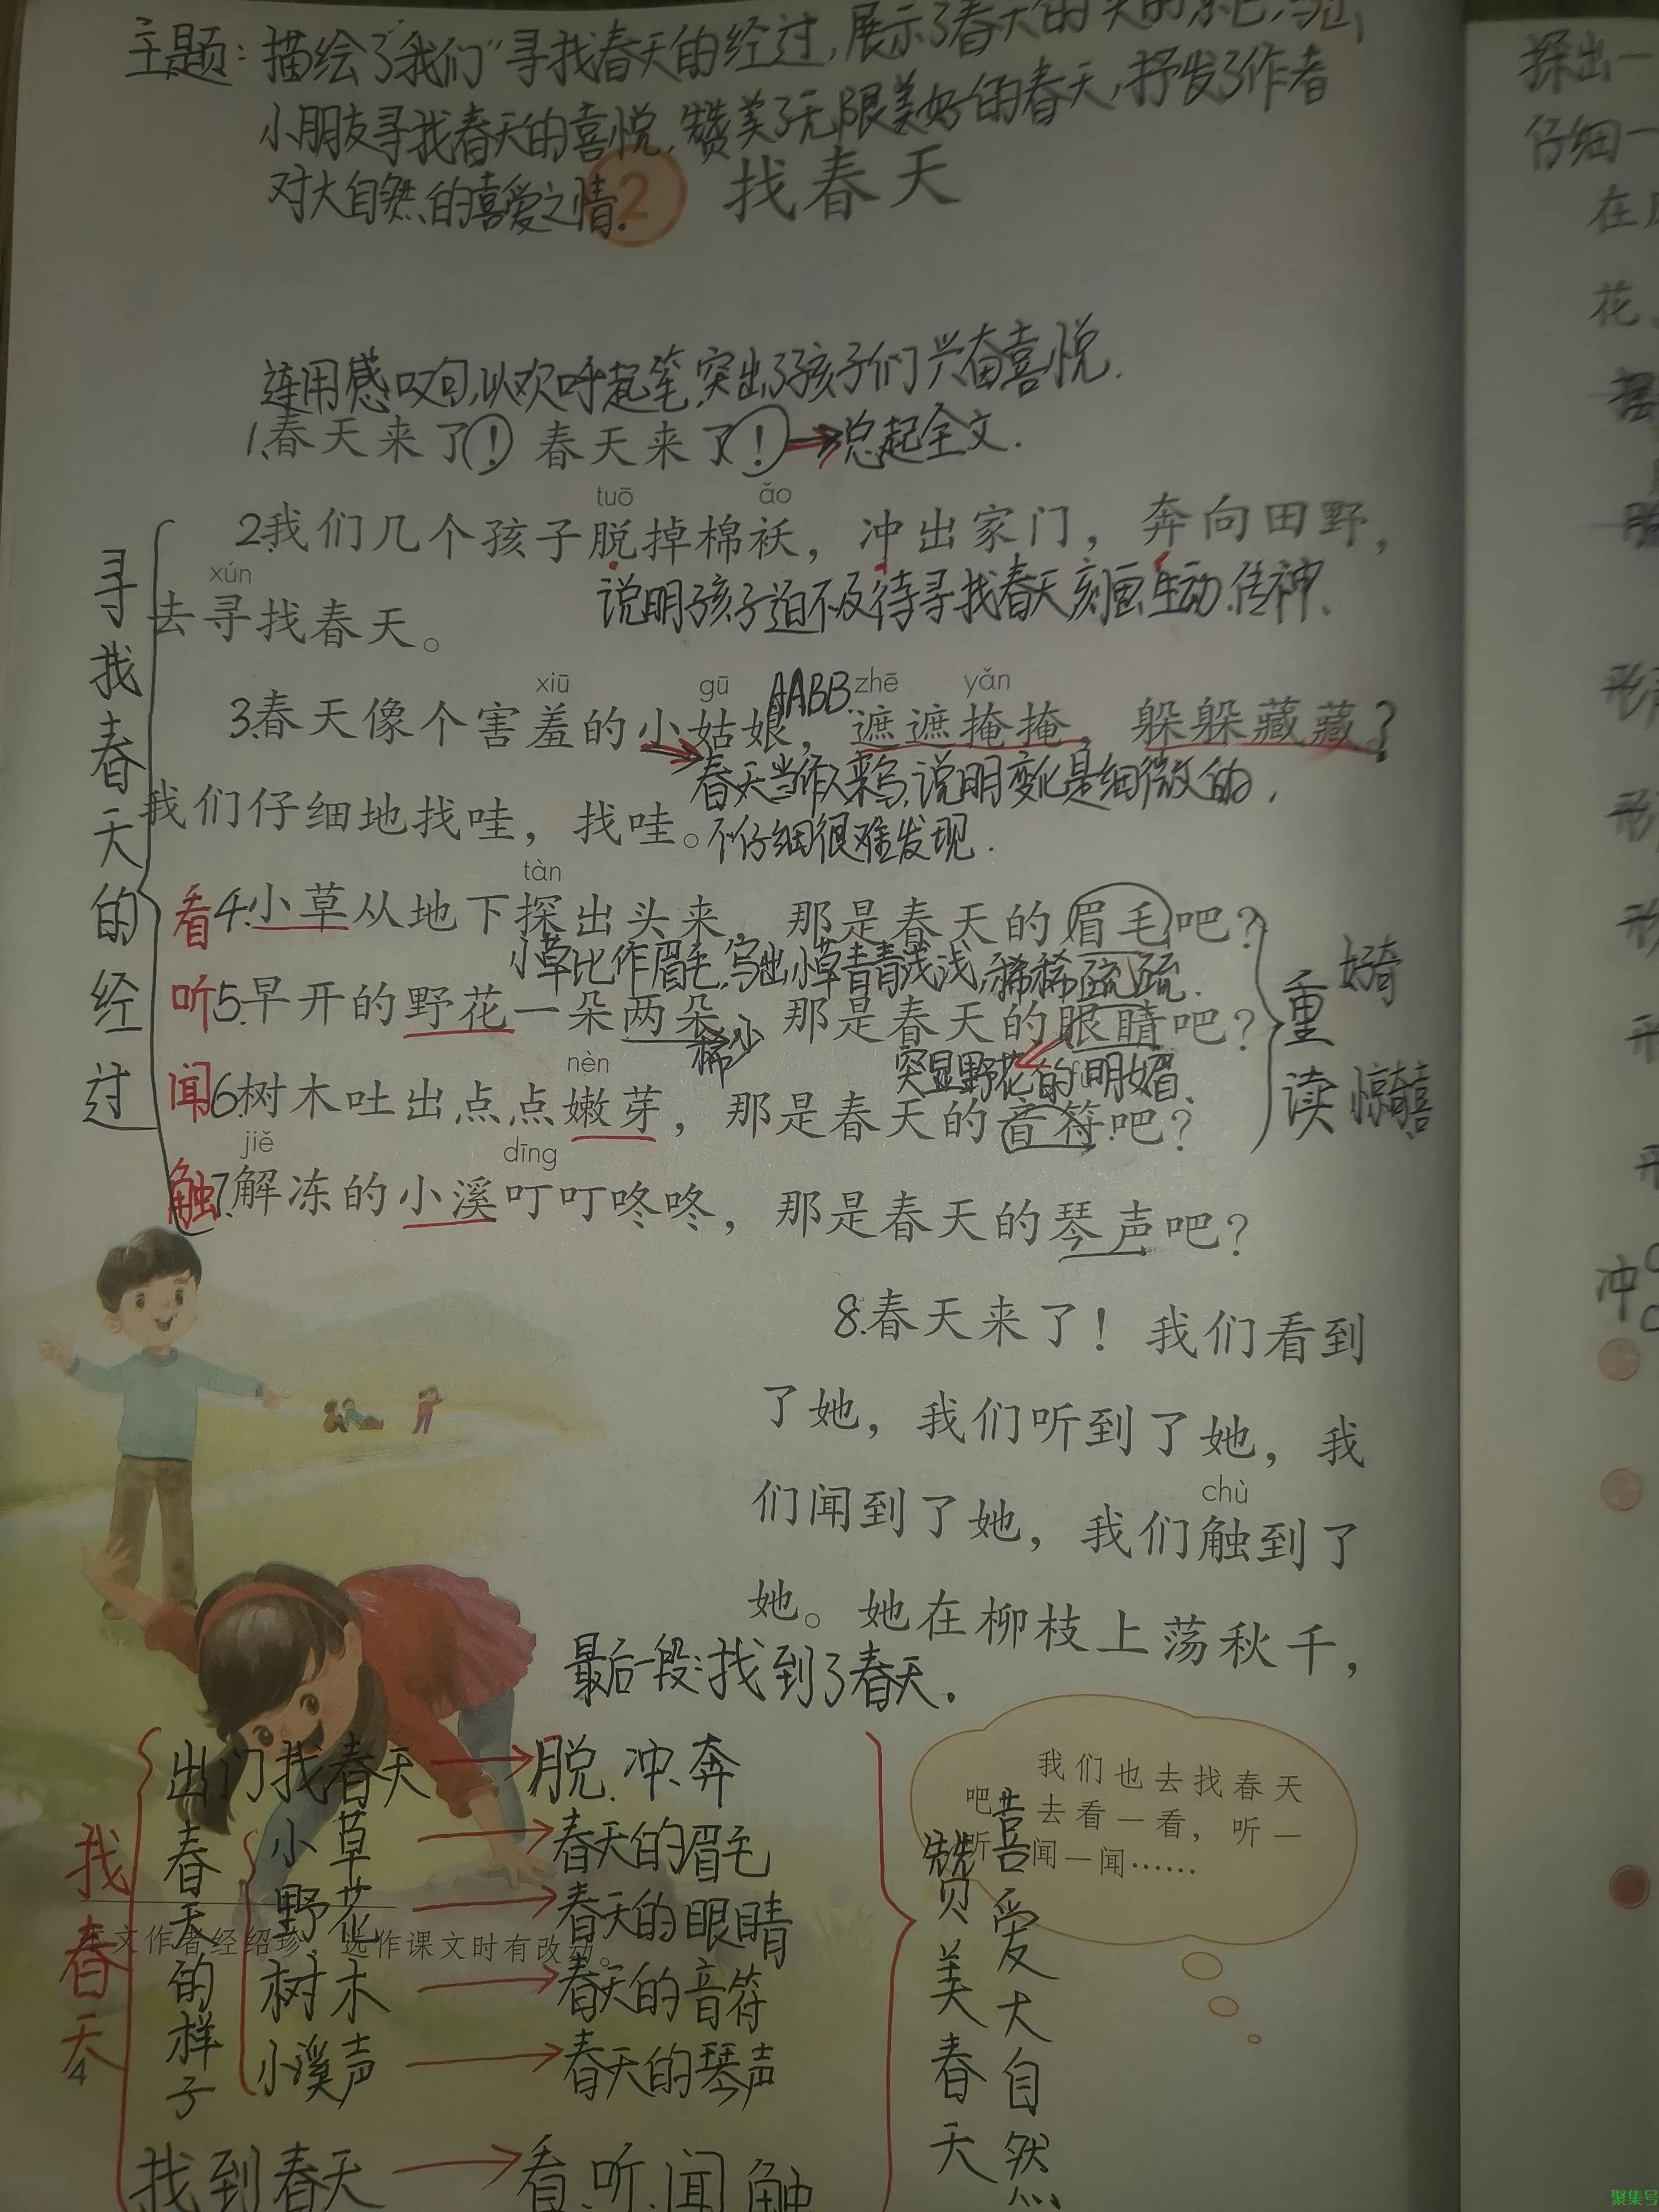 主题:描绘了"我们"寻找春天的经过,展示了春天的
小朋友寻找春天的喜悦,赞美了无限美好的春天,抒发了作者
对大自然的喜爱之情.
2 找春天
连用感叹句,以欢呼起笔,突出了孩子们兴奋喜悦.
1.春天来了! 春天来了! →总起全文.
tuō ǎo
2.我们几个孩子脱掉棉袄,冲出家门,奔向田野,
xún
去寻找春天。
说明孩子迫不及待寻找春天刻画生动、传神、
寻找春天的经过
xiū gū AABB zhē yǎn
3.春天像个害羞的小姑娘,遮遮掩掩,躲躲藏藏?
春天当作人来写,说明变化是细微的,
我们仔细地找哇,找哇。
不仔细很难发现.
tàn
看 4.小草从地下探出头来,那是春天的眉毛吧?
小草比作眉毛,写出小草青青浅浅,稀稀疏疏.
听 5.早开的野花一朵两朵,那是春天的眼睛吧?
稀少
突显野花的明媚、
nèn
闻 6.树木吐出点点嫩芽,那是春天的音符吧?
重读 好奇 惊喜
jiě dīng
触 7.解冻的小溪叮叮咚咚,那是春天的琴声吧?
8.春天来了!我们看到
了她,我们听到了她,我
chù
们闻到了她,我们触到了
她。她在柳枝上荡秋千,
最后一段:找到了春天.
我们也去找春天
吧 去看一看,听一
听 闻一闻……
找春天
出门找春天→脱、冲、奔
春天的样子
小草→春天的眉毛
野花→春天的眼睛
文作者经绍珍,选作课文时有改动。
树木→春天的音符
小溪声→春天的琴声
4
找到春天→看、听、闻、触
赞美春天
喜爱大自然
探出一
仔细一
在
花
冲
聚集号